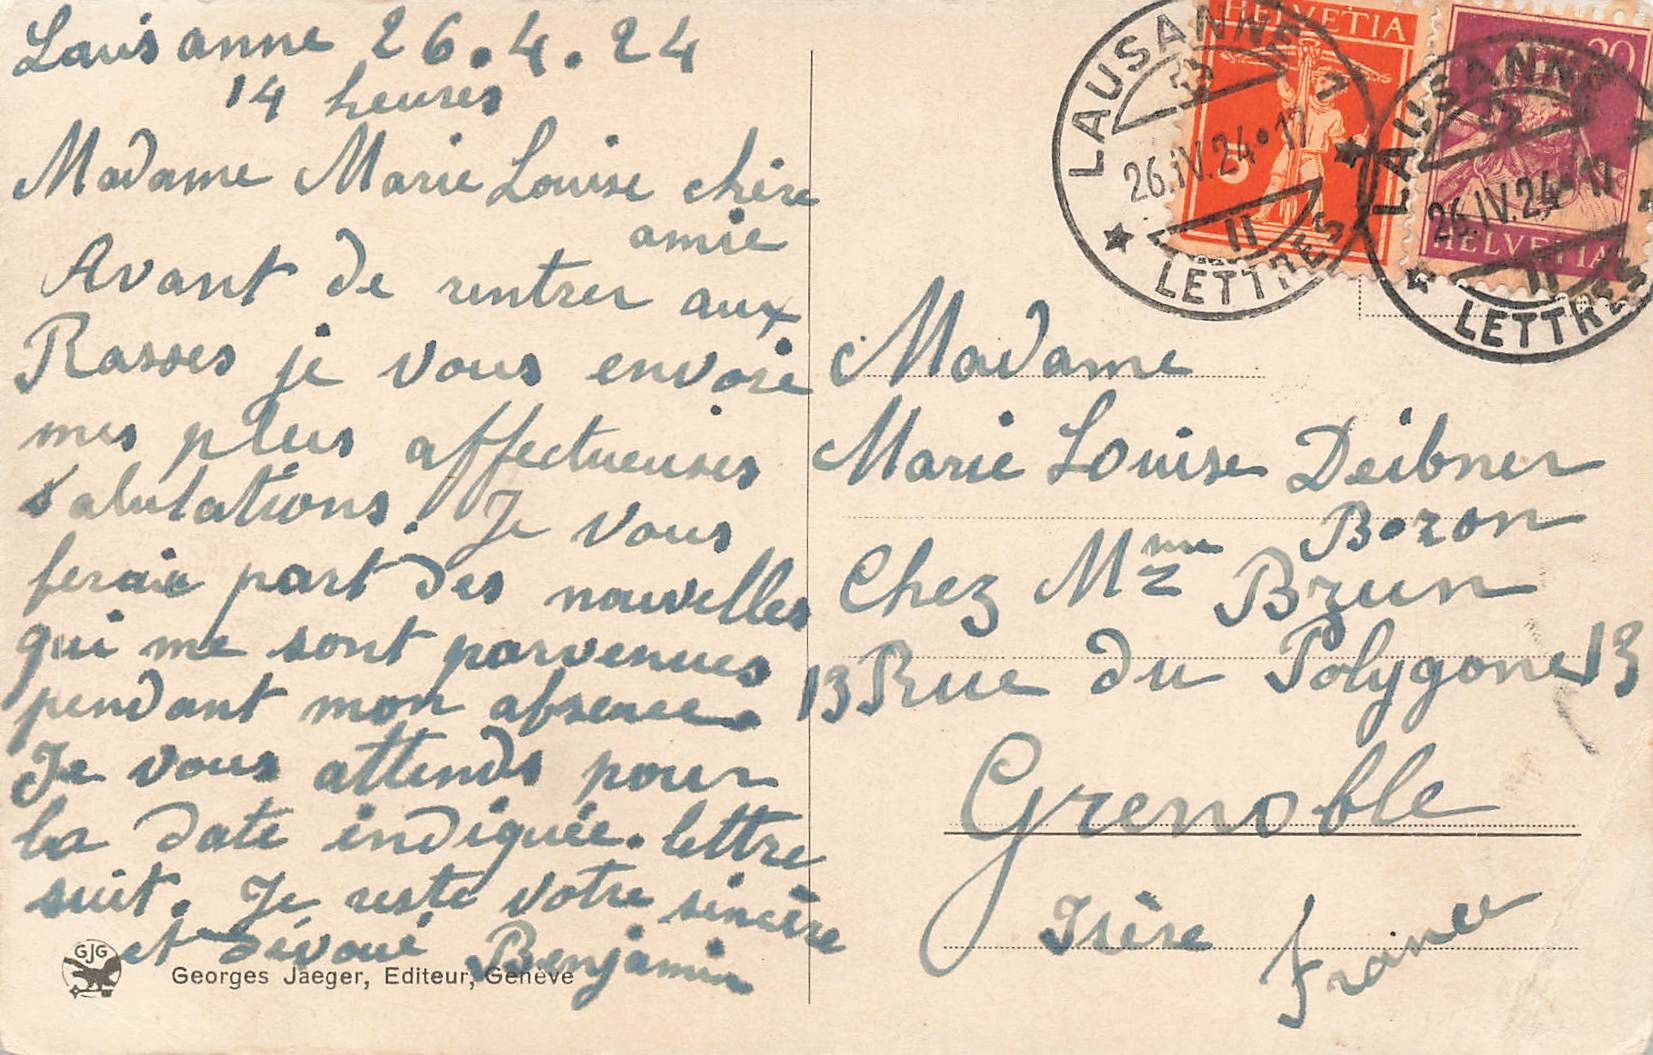 Lausanne 26.4.24
14 heures
Madame Marie Louise chère
amie
Avant de rentrer aux
Rasses je vous envoie
mes plus affectueuses
salutations. Je vous
ferais part des nouvelles
qui me sont parvenues
pendant mon absence.
Je vous attends pour
la date indiquée. lettre
suit. Je reste votre sincère
et dévoué Benjamin
GJG
Georges Jaeger, Editeur, Genève
HELVETIA
20
HELVETIA
LAUSANNE 1
26.IV.24•17
II
LETTRES
LAUSANNE 1
26.IV.24•17
II
LETTRES
Madame
Marie Louise Deibner
Bozon
Chez Mme Brun
13 Rue du Polygone 13
Grenoble
Isère France